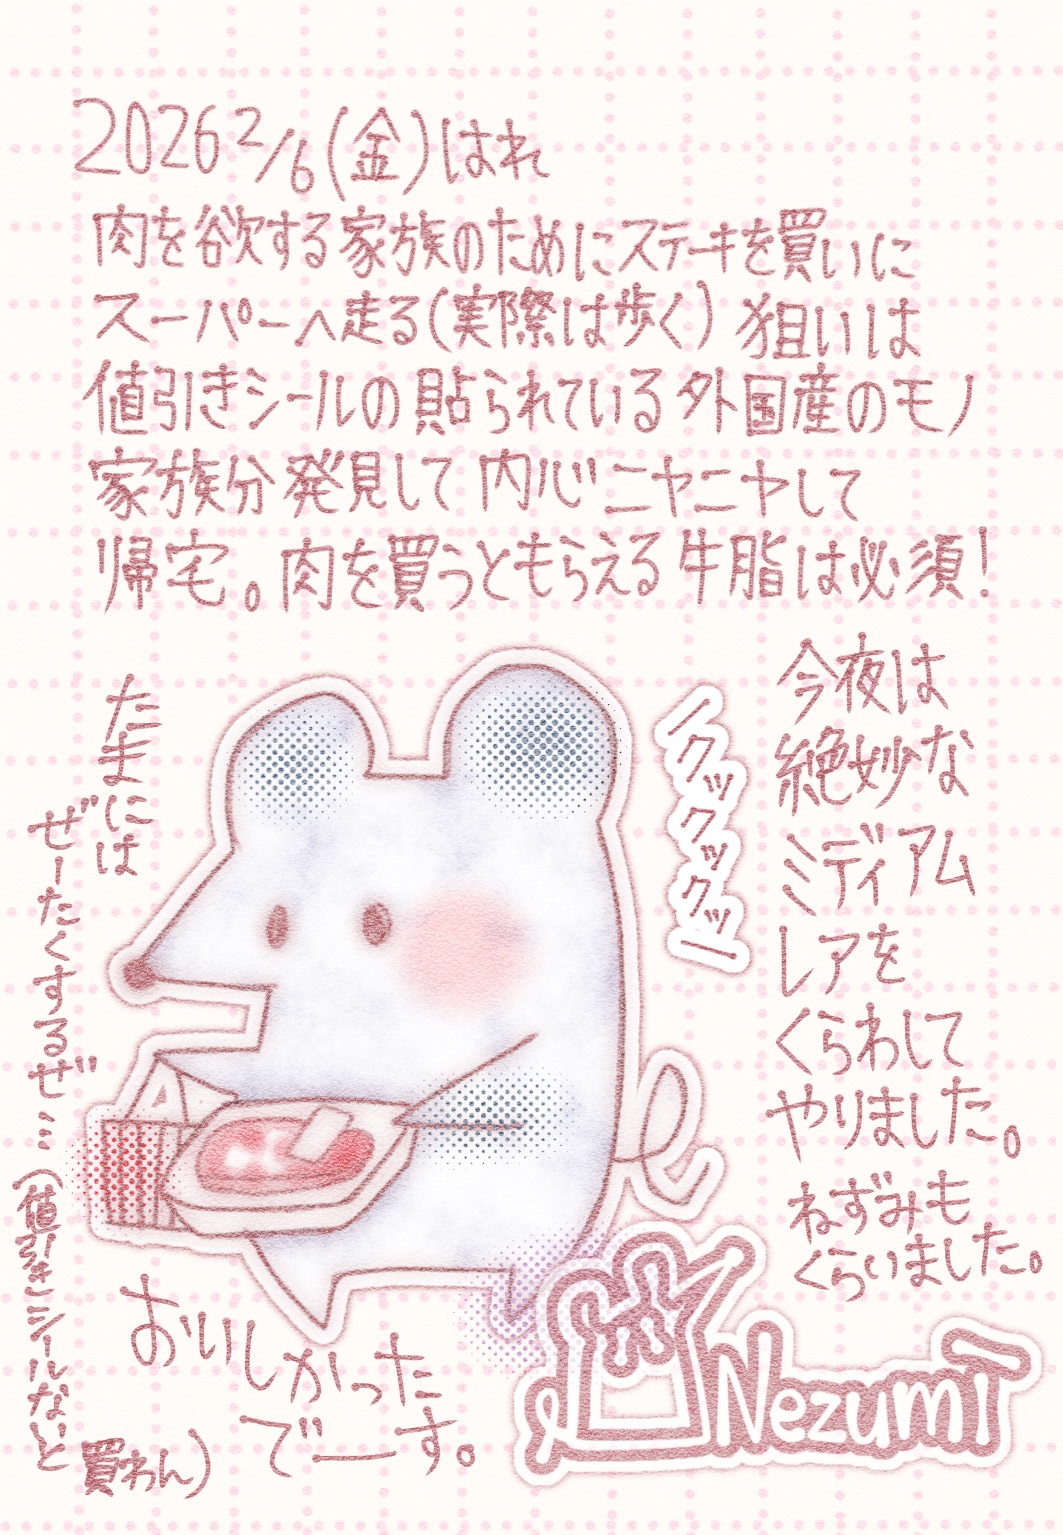 2026 2/6(金)はれ
肉を欲する家族のためにステーキを買いに
スーパーへ走る(実際は歩く) 狙いは
値引きシールの貼られている外国産のモノ
家族分発見して内心ニヤニヤして
帰宅。肉を買うともらえる牛脂は必須!
今夜は
絶妙な
ミディアム
レアを
くらわして
やりました。
ねずみも
くらいました。
クックックッ
たまには
ぜーたくするぜ…
(値引きシールなど
買わん)
おいしかった
でーす。
Nezumi